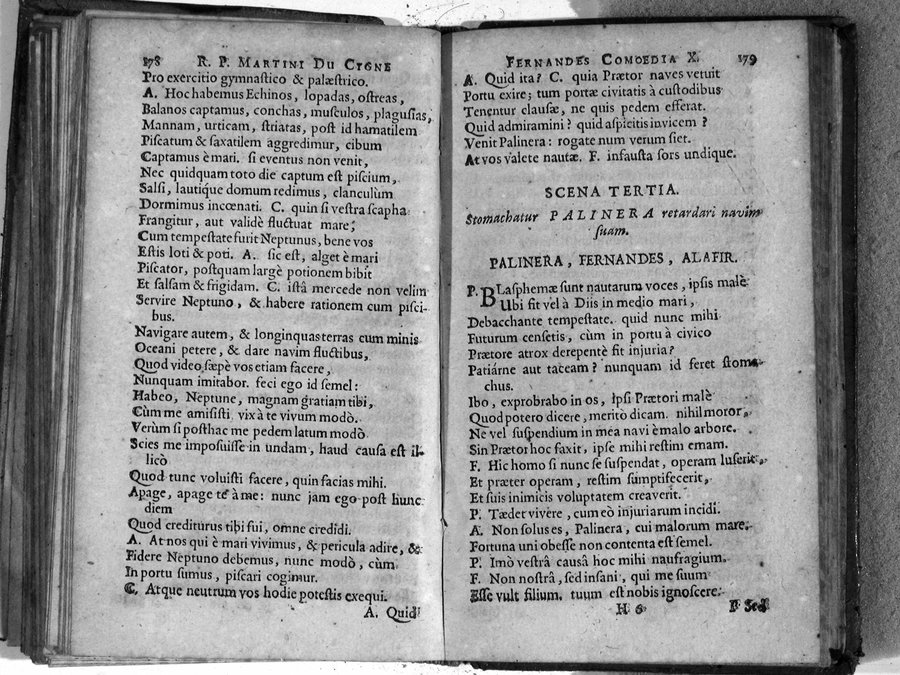 178 R. P. MARTINI DU CYGNE
Pro exercitio gymnastico & palæstrico.
A. Hoc habemus Echinos, lopadas, ostreas,
Balanos captamus, conchas, musculos, plagusias,
Mannam, urticam, striatas, post id hamatilem
Piscatum & saxatilem aggredimur, cibum
Captamus è mari. si eventus non venit,
Nec quidquam toto die captum est piscium,
Salsi, lautique domum redimus, clanculùm
Dormimus incœnati. C. quin si vestra scapha
Frangitur, aut validè fluctuat mare,
Cum tempestate furit Neptunus, bene vos
Estis loti & poti. A. sic est, alget è mari
Piscator, postquam largè potionem bibit
Et salsam & frigidam. C. istâ mercede non velim
Servire Neptuno, & habere rationem cum pisci-
bus.
Navigare autem, & longinquas terras cum minis
Oceani petere, & dare navim fluctibus,
Quod video sæpè vos etiam facere,
Nunquam imitabor. feci ego id semel:
Habeo, Neptune, magnam gratiam tibi,
Cùm me amisisti. vix à te vivum modò.
Verùm si posthac me pedem latum modò
Scies me imposuisse in undam, haud causa est il-
licò
Quod tunc voluisti facere, quin facias mihi.
Apage, apage te à me: nunc jam ego post hunc
diem
Quod crediturus tibi fui, omne credidi.
A. At nos qui è mari vivimus, & pericula adire, &
Fidere Neptuno debemus, nunc modò, cùm
In portu sumus, piscari cogimur.
C. Atque neutrum vos hodie potestis exequi.
A. Quid
FERNANDES COMOEDIA X. 179
A. Quid ita? C. quia Prætor naves vetuit
Portu exire; tum portæ civitatis à custodibus
Tenentur clausæ, ne quis pedem efferat.
Quid admiramini? quid aspicitis invicem?
Venit Palinera: rogate num verum siet.
At vos valete nautæ. F. infausta sors undique.
SCENA TERTIA.
Stomachatur PALINERA retardari navim
suam.
PALINERA, FERNANDES, ALAFIR.
P. BLasphemæ sunt nautarum voces, ipsis malè
Ubi fit vel à Diis in medio mari,
Debacchante tempestate. quid nunc mihi
Futurum censetis, cùm in portu à civico
Prætore atrox derepentè fit injuria?
Patiárne aut taceam? nunquam id feret stoma-
chus.
Ibo, exprobrabo in os, ipsi Prætori malè
Quod potero dicere, meritò dicam. nihil moror,
Ne vel suspendium in mea navi è malo arbore.
Sin Prætor hoc faxit, ipse mihi restim emam.
F. Hic homo si nunc se suspendat, operam luserit,
Et præter operam, restim sumptifecerit,
Et suis inimicis voluptatem creaverit.
P. Tædet vivere, cum eò injuriarum incidi.
A. Non solus es, Palinera, cui malorum mare.
Fortuna uni obesse non contenta est semel.
P. Imò vestrâ causâ hoc mihi naufragium.
F. Non nostrâ, sed insani, qui me suum
Esse vult filium. tuum est nobis ignoscere.
H 6 F. Sed